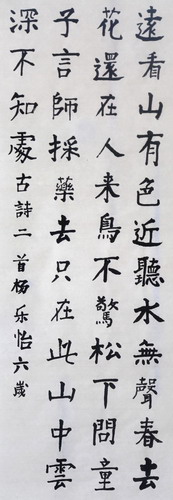 遠看山有色近聽水無聲春去
花還在人来鳥不驚松下問童
子言師採藥去只在此山中雲
深不知處古詩二首杨乐怡六歲